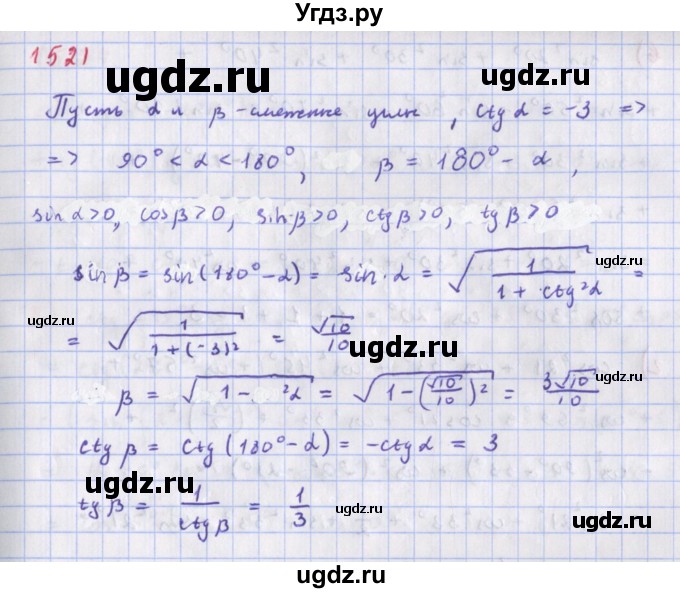 Угдз.ру
1521
ugdz.ru
Пусть α и β - смежные углы, ctg α = -3 =>
=> 90° < α < 180°, β = 180° - α,
sin α > 0, cos β > 0, sin β > 0, ctg β > 0, tg β > 0
ugdz.ru
sin β = sin(180° - α) = sin · α = √(1/(1 + ctg²α)) =
ugdz.ru
= √(1/(1 + (-3)²)) = √10/10
ugdz.ru
ugdz.ru
β = √(1 - ²α) = √(1 - (√10/10)²) = 3√10/10
ugdz.ru
ctg β = ctg(180° - α) = -ctg α = 3
ugdz.ru
tg β = 1/ctg β = 1/3
ugdz.ru
ugdz.ru
ugdz.ru